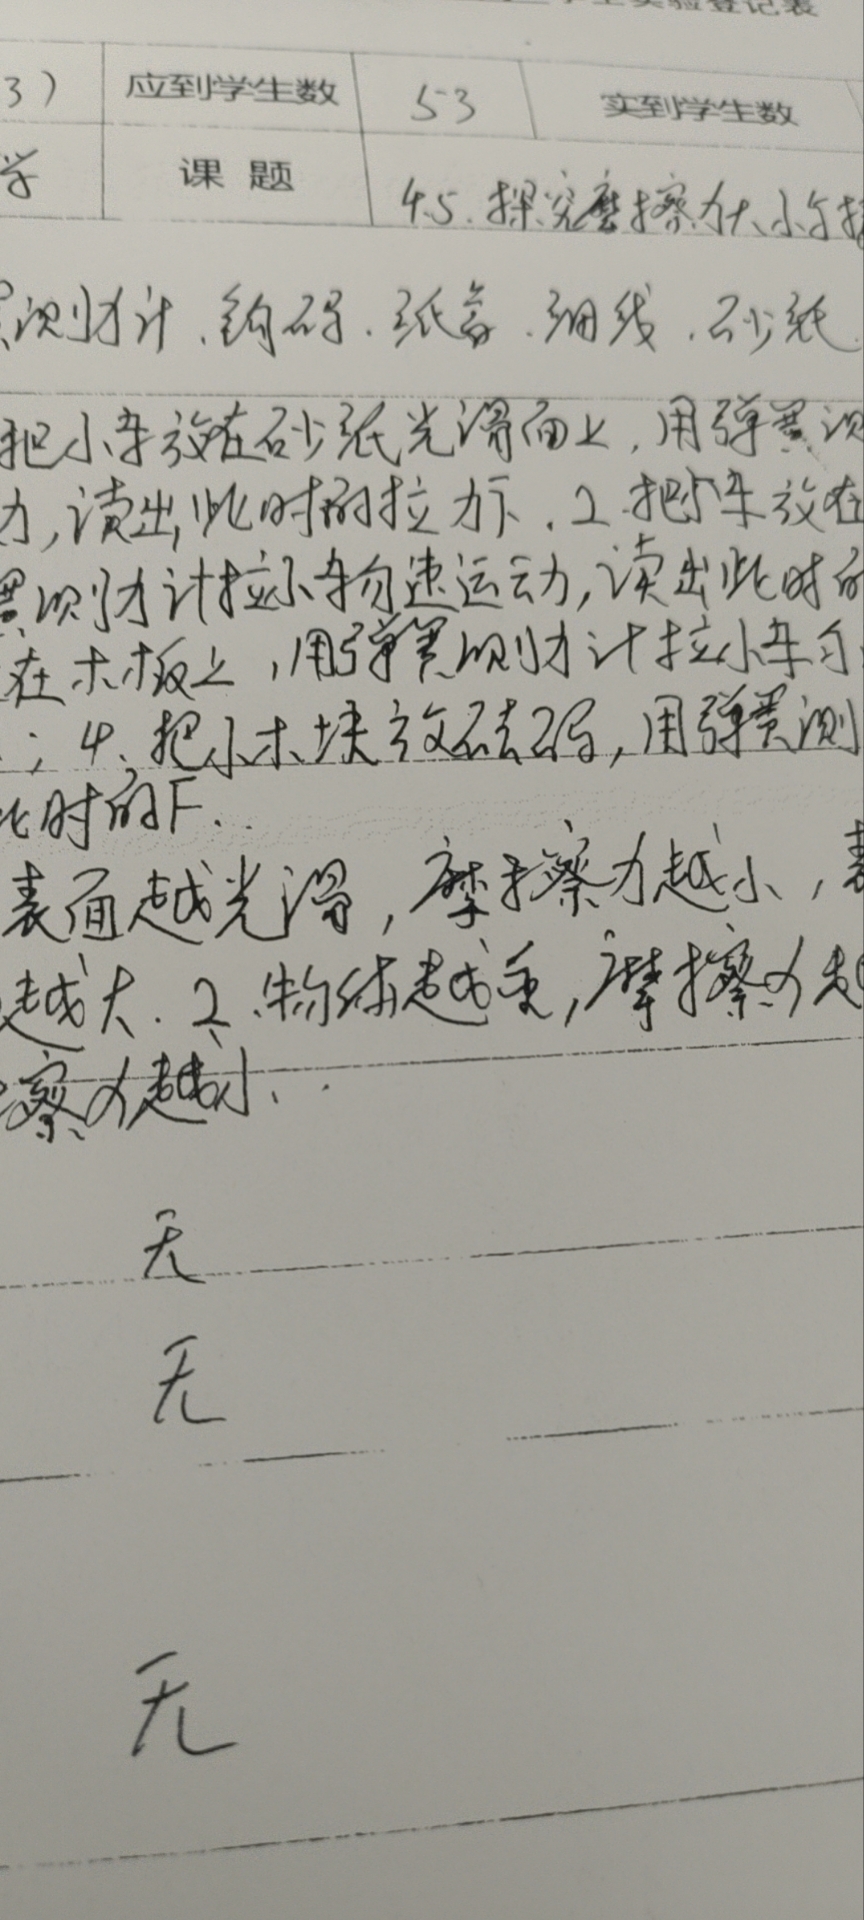 学生实验登记表
3） 应到学生数 53 实到学生数
学 课 题 4.5.探究摩擦力大小与接
测力计.钩码.纸盒.细线.砂纸.
把小车放在砂纸光滑面上,用弹簧测
力,读出此时的拉力F.2.把小车放在
簧测力计拉小车匀速运动,读出此时的
在木板上,用弹簧测力计拉小车匀
;4、把小木块放砝码,用弹簧测
此时的F..
表面越光滑,摩擦力越小,表
越大.2、物体越重,摩擦力越
擦力越小..
无
无
无